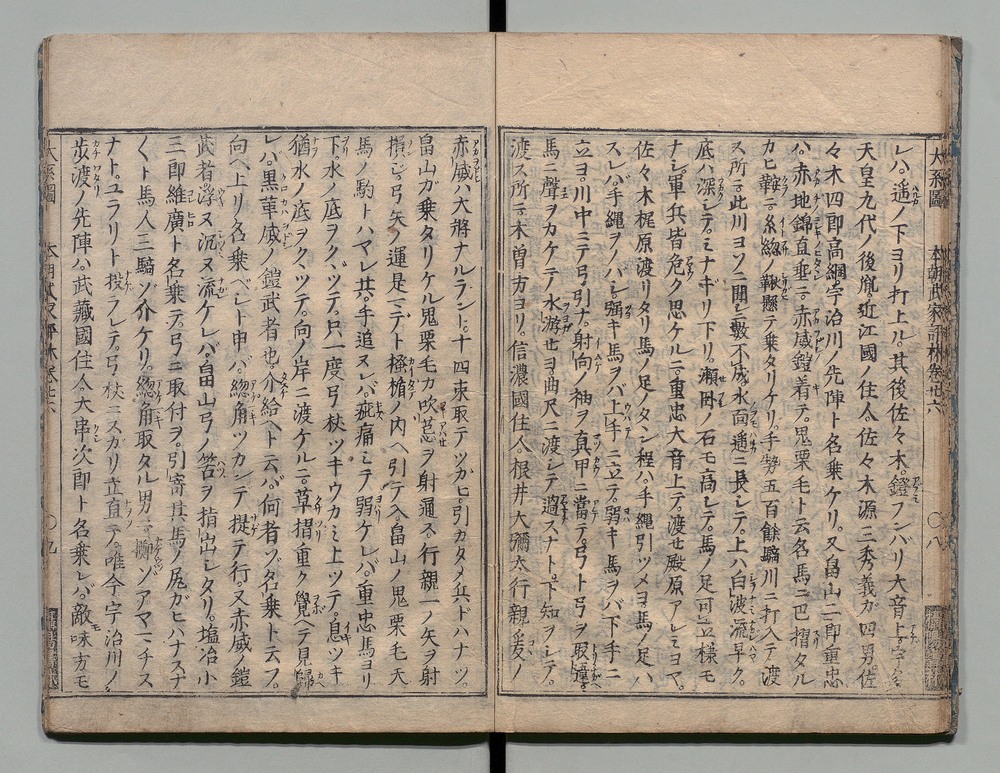 大系圖 本朝武家評林卷廿六 〇八
レハ。遥ノ下ヨリ打上ル。其後佐々木。鐙フンバリ大音上。宇多
天皇九代ノ後胤。近江國ノ住人佐々木源三秀義ガ四男。佐
々木四郎高綱。宇治川ノ先陣ト名乗ケリ。又畠山二郎重忠
ハ。赤地錦直垂ニ。赤威鎧着テ。鬼栗毛ト云名馬ニ巴摺タル
カヒ鞍ニ。糸総ノ鞦懸テ乗タリケリ。手勢五百餘騎川ニ打入テ渡
ス所ニ。此川ヨソニ聞シニ數不成。水面遥ニ長シテ。上ハ白波流早ク。
底ハ深シテ。ミナギリ下リ。瀬田ノ石モ高シテ。馬ノ足可立様モ
ナシ。軍兵皆危ク思ケルニ。重忠大音上テ。渡セ殿原アレミヨマ。
佐々木梶原渡リタリ。馬ノ足ノタン程ハ。手縄引ツメヨ。馬ノ足ハ
スレハ。手縄ヲハシ。強キ馬ヲバ上手ニ立テ。弱キ馬ヲバ下手ニ
立ヨ。川中ニテ弓引ナ。射向ノ袖ヲ真甲ニ當テ。弓ト弓ヲ取
馬ニ聲ヲカケテ水游セヨ。曲尺ニ渡シテ過スナト。下知ヲシテ。
渡ス所ニ。木曽方ヨリ。信濃國住人。根井大彌太行親。爰ノ
赤威ハ大將ナルラント。十四束取テツカヒ。引カタメ兵ドハナツ。
畠山ガ乗タリケル鬼栗毛カ吹ヲ射通ス。行親一ノ矢ヲ射
損ジ。弓矢ノ運是マデト掻楯ノ内ヘ引テ入。畠山ノ鬼栗毛大
馬ノ駒トハマレ共。手追ヌレバ。疵痛ミテ弱ケレバ。重忠馬ヨリ
下。水ノ底ヲクヾツテ。只一度弓杖ツキウカミ上ツテ。息ツキ
猶水ノ底ヲクヾツテ。向ノ岸ニ渡ケルニ。草摺重ク覺ヘテ見
レバ。黒革威ノ鎧武者也。介給ヘト云バ。何者ゾ名乗ト云フ。
向ヘ上リ名乗ベシト申バ。総角ツカンデ提テ行。又赤威ノ鎧
武者浮ヌ沉ヌ流ケレバ。畠山弓ノ筈ヲ指出シタリ。塩冶小
三郎維廣ト名乗テ。弓ニ取付ヲ。引寄其馬ノ尾ガヒハナスナ
クト馬人三騎ゾ介ケリ。総角取タル男ニ。擲ゾアマニチス
ナト。ユラリト投ラレテ。弓杖ニスガリ立直テ。唯今宇治川ノ
歩渡ノ先陣ハ。武藏國住人。大串次郎ト名乗レバ。敵味方モ
大系圖 本朝武家評林卷廿六 〇九